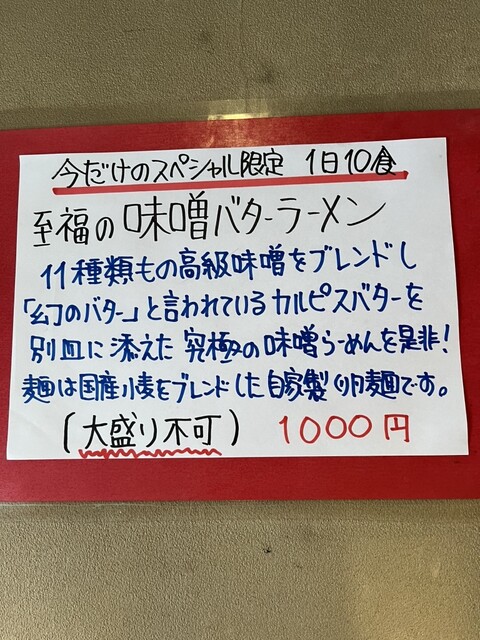 今だけのスペシャル限定 1日10食
至福の味噌バターラーメン
11種類もの高級味噌をブレンドし
「幻のバター」と言われているカルピスバターを
別皿に添えた究極の味噌らーめんを是非!
麺は国産小麦をブレンドした自家製卵麺です。
(大盛り不可) 1000円